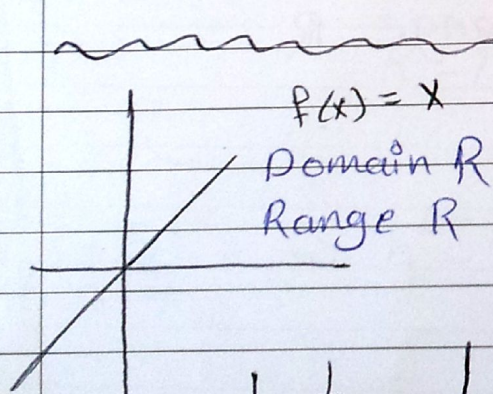 f(x) = x
Domain R
Range R